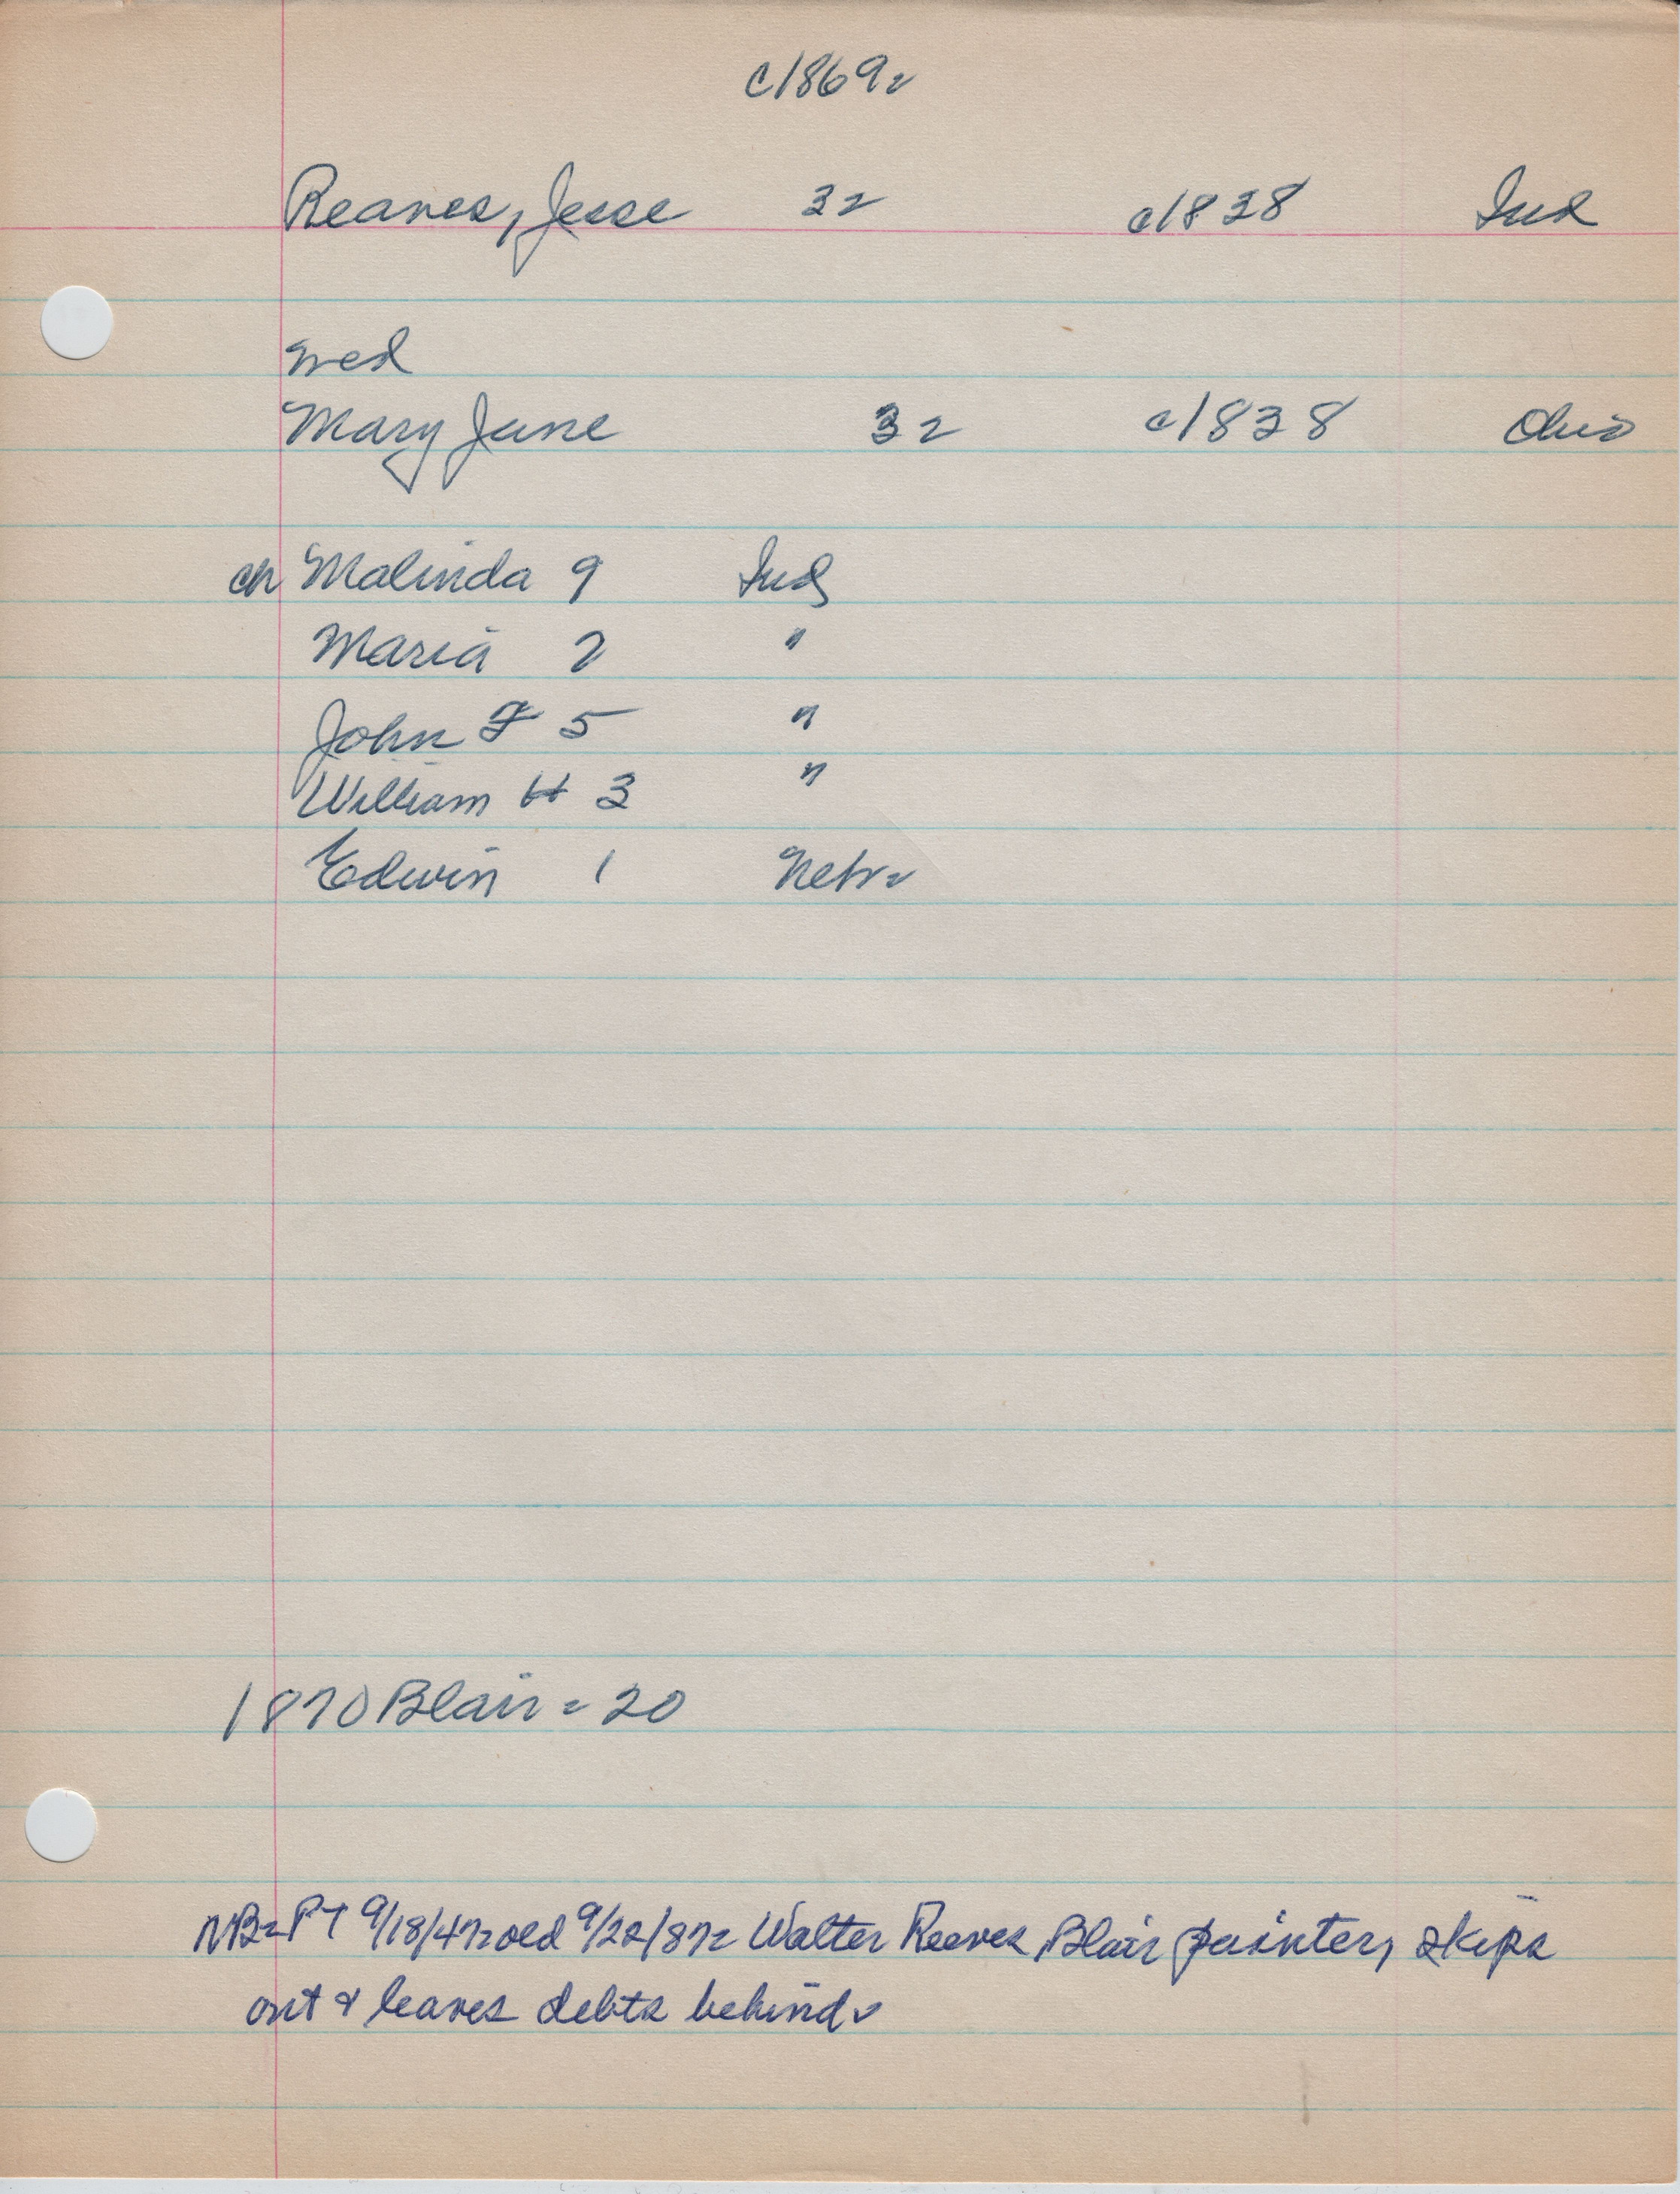 c1869.
Reaves, Jesse 32 c1838 Ind
wed
Mary Jane 32 c1838 Ohio
ch Malinda 9 Ind
Maria 7 "
John F 5 "
William H 3 "
Edwin 1 Nebr.
1870 Blair = 20
NB= PT 9/18/47= old 9/22/87= Walter Reeves, Blair painter, skips
out & leaves debts behind.